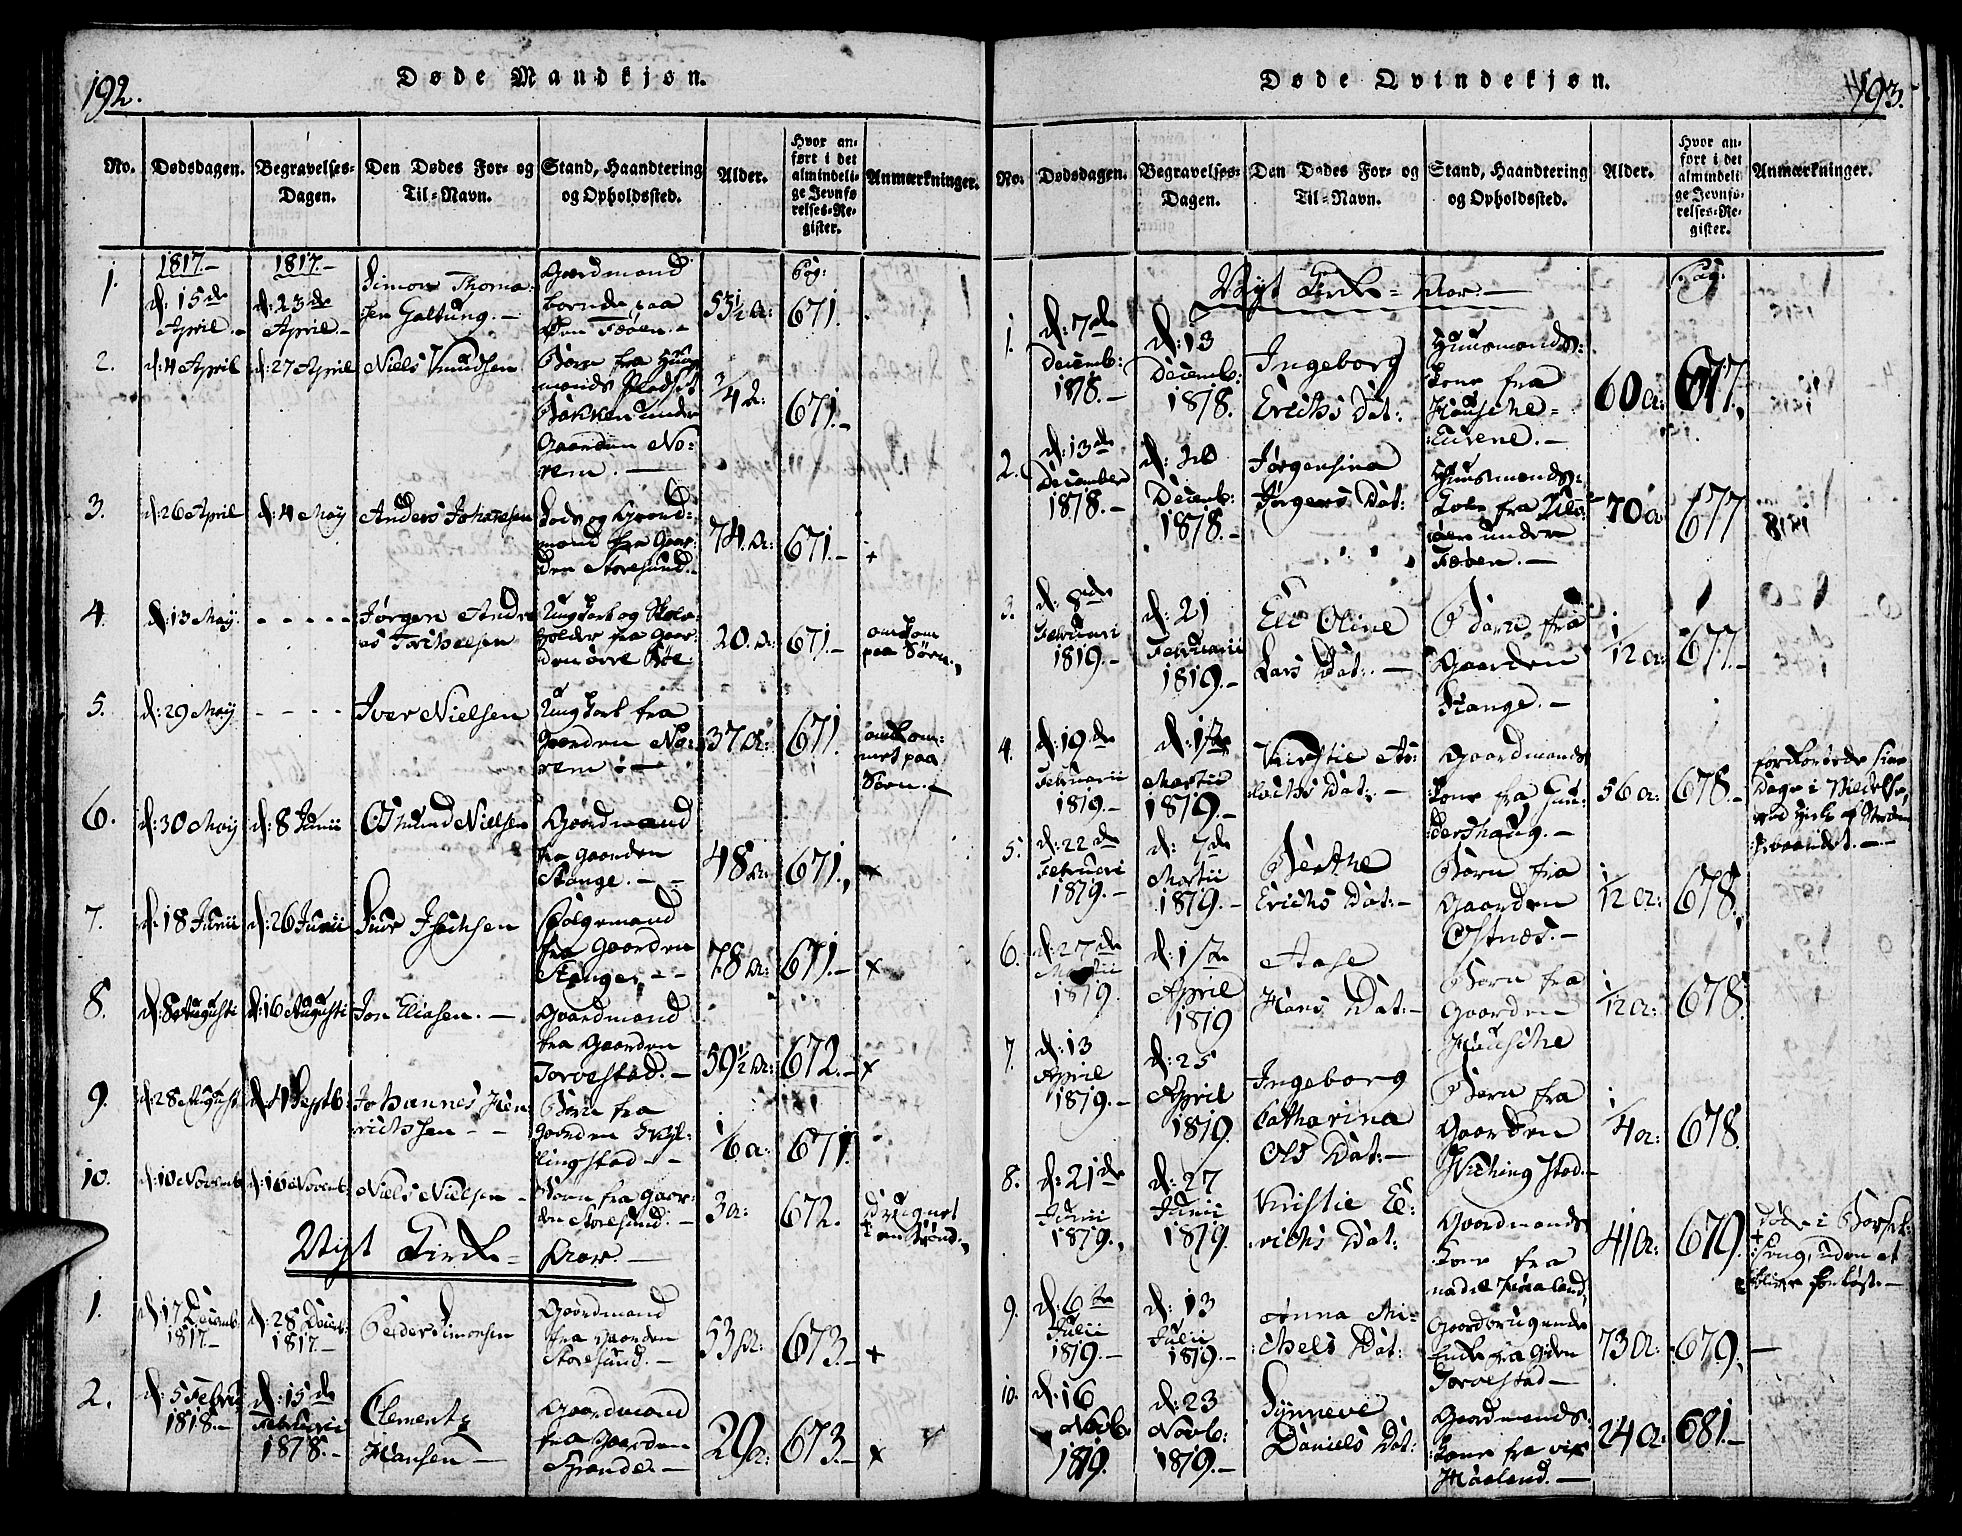 192.
Døde Mandkjøn.
No. Dødsdagen. Begravelses-Dagen. Den Dødes For- og Til-Navn. Stand, Haandtering og Opholdssted. Alder. Hvor anført i det almindelige Jevnførelses-Register. Anmærkninger.
1817.- 1817.- Pag:
1. d: 15de April.- d: 23de April.- Simon Thomasen Galtung.- Gaardmand boende paa Fæøen.- 53½ A: 671.
2. d: 4 April d: 27 April Niels Knudsen Barn fra Huusmands Pladset Bakken under Gaarden Norem.- 3/4 A: 671.-
3. d: 26 April d: 4 May Anders Johannesen Lods og Gaardmand fra Gaarden Storesund.- 74 A: 671.- +
4. d: 13 May. - - - - - Jørgen Andreas Ungkarl og Skoleholder fra Gaarden 20. A: 671.- omkom paa Søen.,
5. d: 29 May - - - - Iver Nielsen Ungkarl fra Gaarden Norem.- 37 A: 671. omkommet paa Søen.-
6. d: 30 May d: 8 Junii Osmund Nielsen Gaardmand fra Gaarden Stange.- - 48 A: 671., +
7. d: 18 Junii d: 26 Junii Siur Isachsen Følgemand fra Gaarden Stange, - - 78 A: 671.- +
8. d: 8 Augusti d: 16 Augusti Jon Eliasen.- Gaardmand fra Gaarden Torvestad.- 59½ A: 672.- +
9. d: 28 August d: 4 Septb: Johannes Henrichsen - - Barn fra Gaarden - - 1/6 a: 671.
10. d: 10 Novemb d: 16 Novemb: Niels Nielsen - Barn fra Gaarden Storesund.- 3 a: 672. druknet
Vigt Kirke-Aar.-
1. d: 17 Decemb. 1817.- d: 28 Decemb: 1817.- Peder Simonsen Gaardmand fra Gaarden Storesund.- 53 A: 673.- +
2. d: 5 Febru 1818.- d: 15de Februarii 1818.- Clement Hansen - Gaardmand fra Gaarden 29 a: 673.- +
193.
Døde Qvindekjøn.
No. Dødsdagen. Begravelses-Dagen. Den Dødes For- og Til-Navn. Stand, Haandtering og Opholdssted. Alder. Hvor anført i det almindelige Jevnførelses-Register. Anmærkninger.
Vigt Kirke-Aar.- Pag:
1. d: 7de Decemb: 1818.- d: 13 Decemb: 1818. Ingeborg Erichs Dat: Huusmands Kone fra 60 a: 677.,
2. d: 13de December 1818.- d: 20 Decemb: 1818.- Jørgensina Jørgens Dat: Huusmands Kone fra under Fæøen.- 70 a 677 1818
3. d: 8de Februari 1819.- d: 21 Februarii 1819.- Eli Oline Lars Dat:.- Barn fra Gaarden Stange.- 1/12 a: 677.-
4. d: 19de Februarii 1819.- d: 1ste Martii 1819.- Kirstie Dat:.- Gaardmands Kone fra 56 a: 678.-
5. d: 22de Februari 1819.- d: 7de Martii 1819.- Berthe Erichs Dat:- Barn fra Gaarden Ostnæs.- 1/12 a: 678.,
6. d: 27de Martii 1819. d: 1ste April 1819 Aase Hans Dat:- Barn fra Gaarden Hausche 1/12 a: 678.
7. d: 13 April 1819.- d: 25 April 1819. Ingeborg Catharina Ols Dat:- Barn fra Gaarden 1/4 a: 678.
8. d: 21de Junii 1819., d: 27 Junii 1819. Kristie Erichs Dat: Gaardmands Kone fra 41 a: 679. døde i Barselseng, uden at blive forløst.-
9. d: 6te Julii 1819.- d: 13 Julii 1819.- Anna Michels Dat: Gaardbrugende Enke fra Gden Torvestad - 73 a: 679., -
10. d: 16 Novb. 1819. d: 23 Novb: 1819.- Synneve Daniels Dat: Gaardmands Kone fra 24 a: 681.-